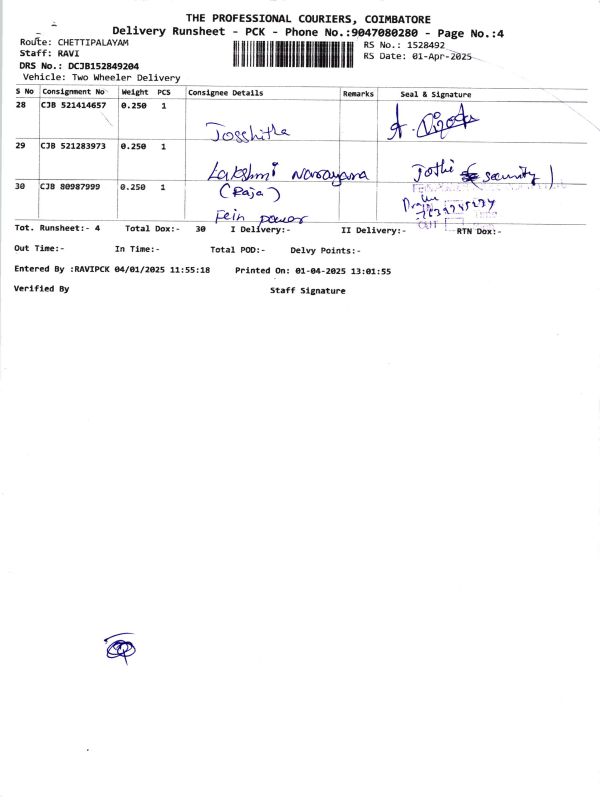 THE PROFESSIONAL COURIERS, COIMBATORE
Delivery Runsheet - PCK - Phone No.:9047080280 - Page No.:4
Route: CHETTIPALAYAM
RS No.: 1528492
Staff: RAVI
RS Date: 01-Apr-2025
DRS No.: DCJB152849204
Vehicle: Two Wheeler Delivery
S No Consignment No Weight PCS Consignee Details Remarks Seal & Signature
28 CJB 521414657 0.250 1
Josshitha
29 CJB 521283973 0.250 1
Lakshmi Narayana Jothi (security)
30 CJB 80987999 0.250 1
(Raja)
Fein power
OUT
Tot. Runsheet:- 4 Total Dox:- 30 I Delivery:- II Delivery:- RTN Dox:-
Out Time:- In Time:- Total POD:- Delvy Points:-
Entered By :RAVIPCK 04/01/2025 11:55:18 Printed On: 01-04-2025 13:01:55
Verified By Staff Signature